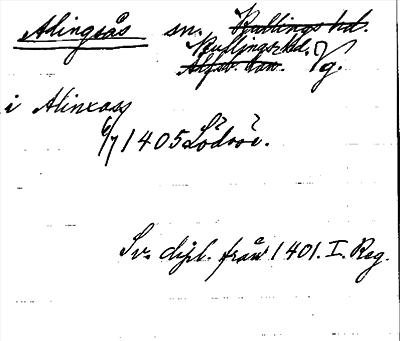 Alingsås sn. Kullings hd.
Kullings hd.
Älfsb. län. Vg.
i Alinxass
6/7 1405 Lödöse.
Sv. dipl. från 1401. I. Reg.